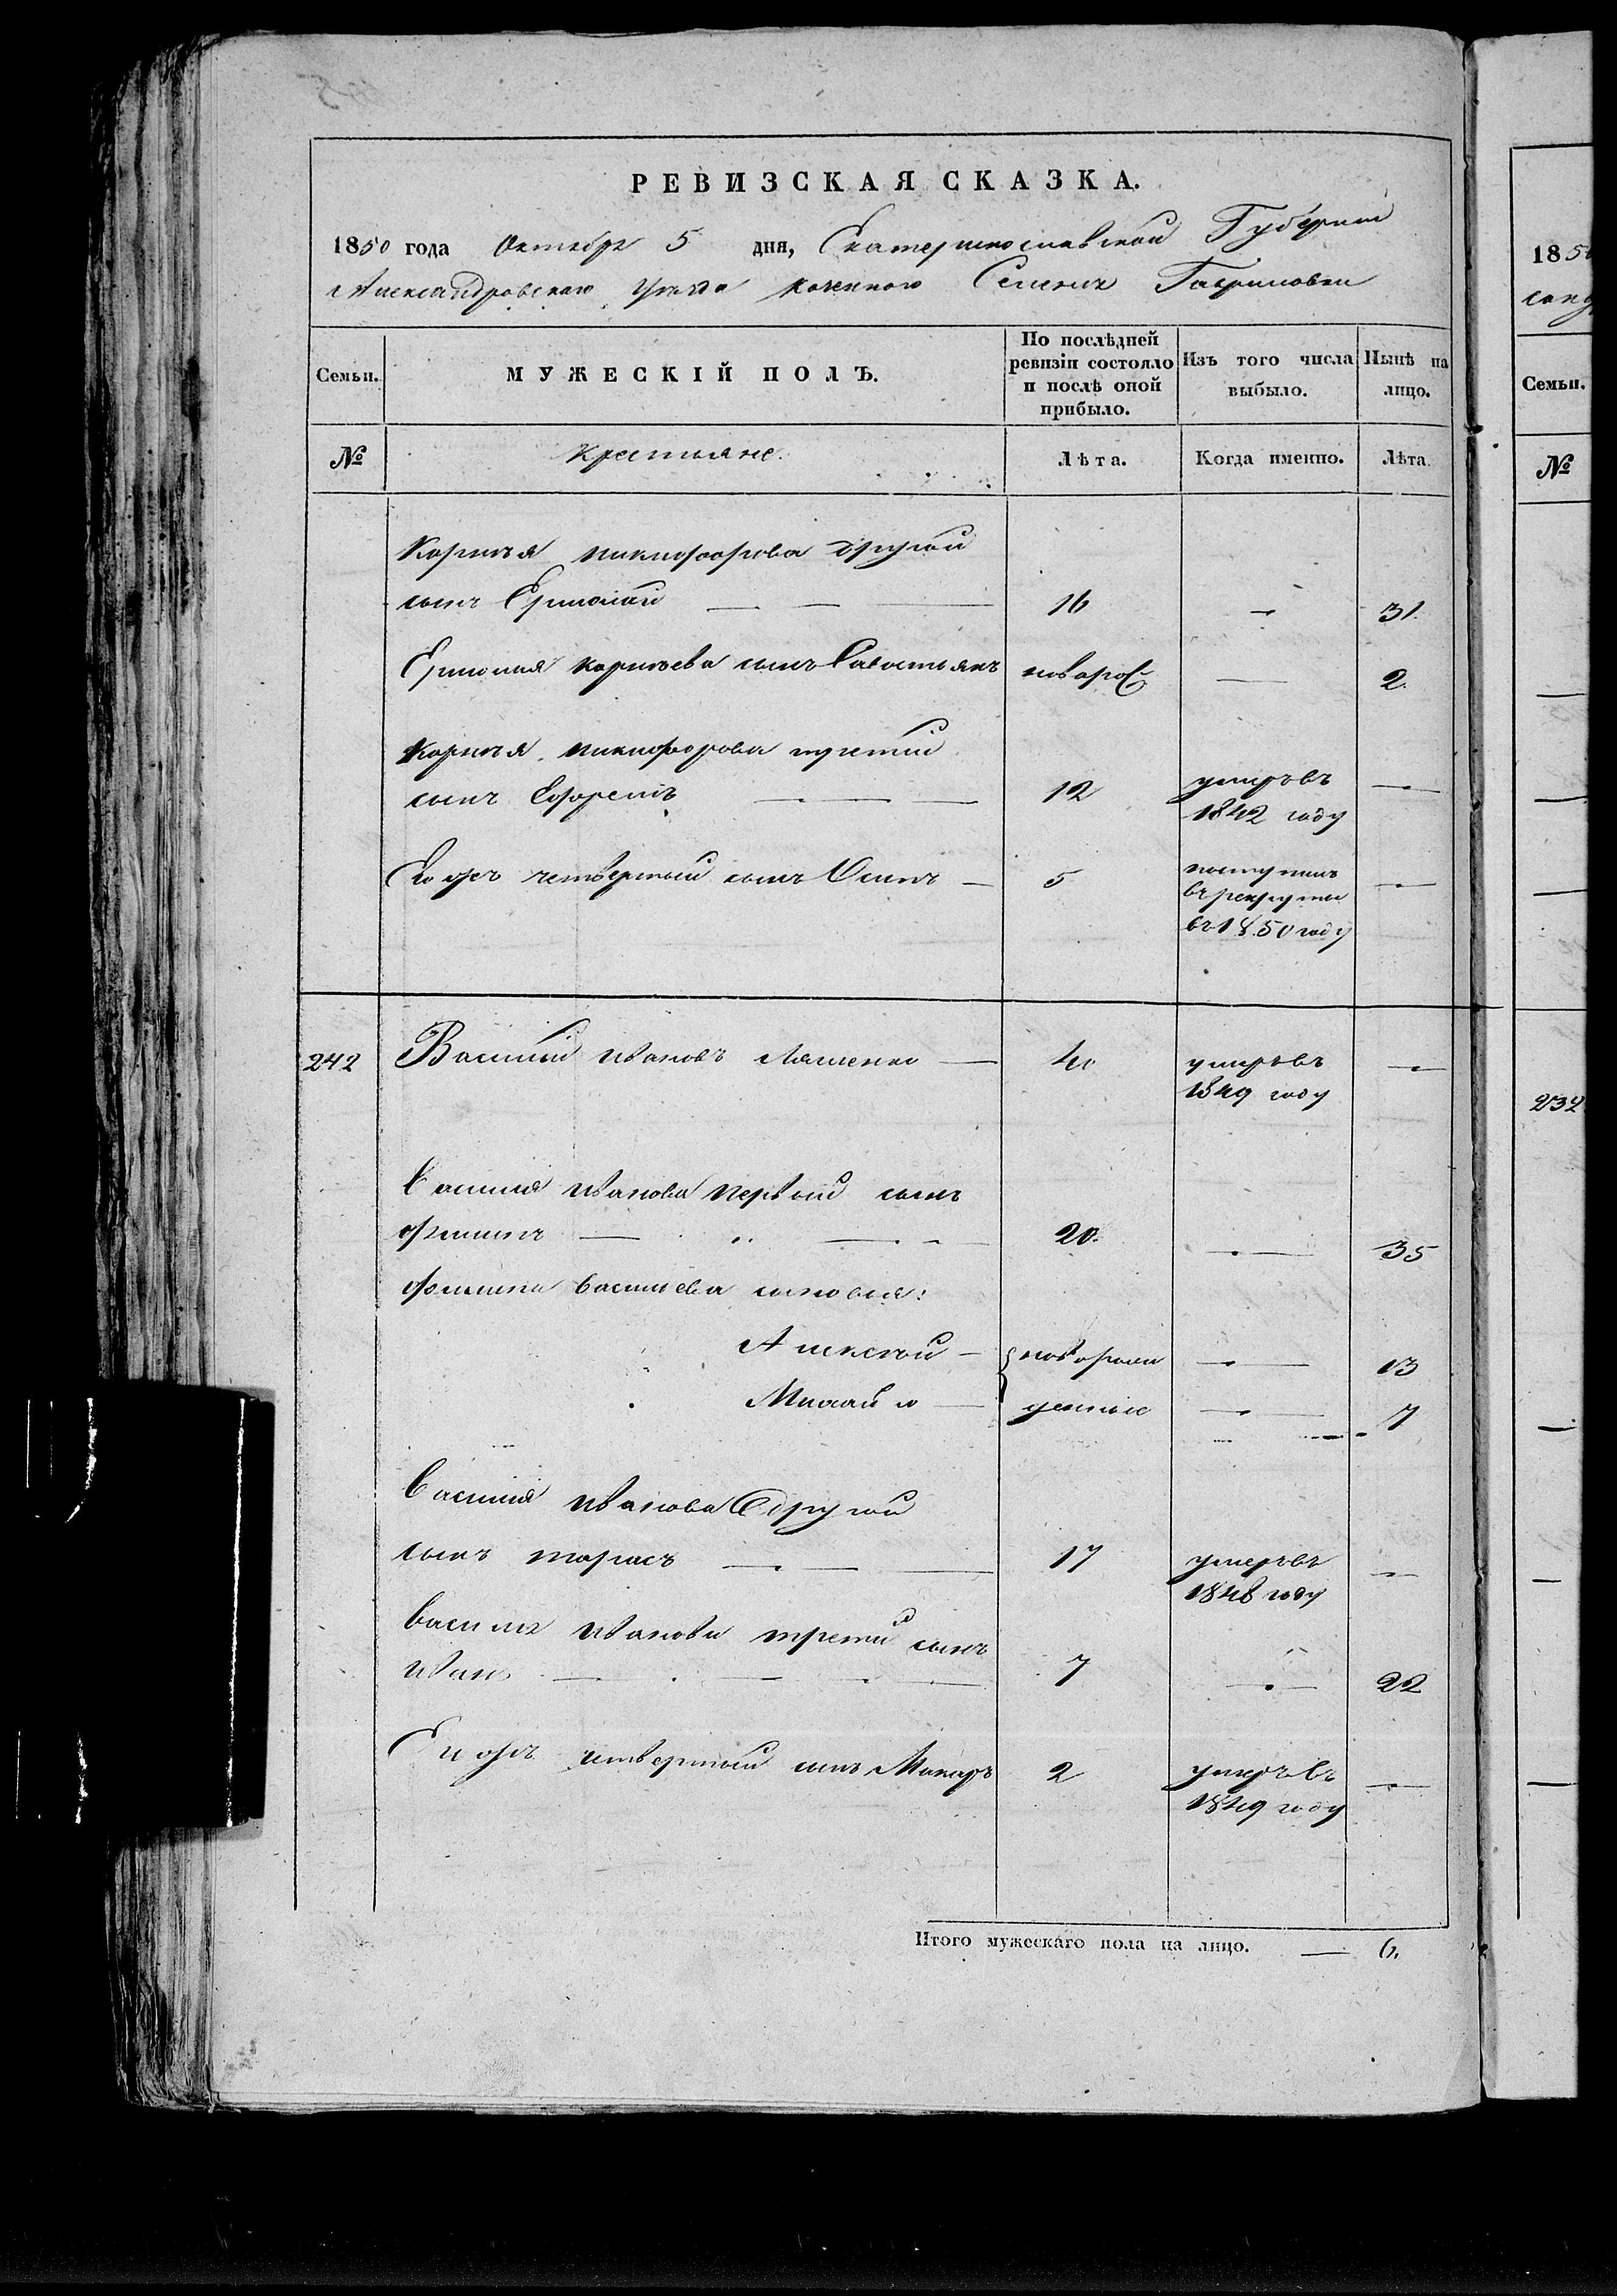 РЕВИЗСКАЯ СКАЗКА.
1850 года Октября 5 дня, Екатеринославской Губернии
Александровского уезда казенного Селения Гавриловки
Семьи. МУЖЕСКІЙ ПОЛЪ. По послѣдней ревизіи состояло и послѣ оной прибыло. Изъ того числа выбыло. Нынѣ на лицо.
№ Крестьяне. Лѣта. Когда именно. Лѣта.
Корнея никифорова другой
сынъ Ермолай — — — 16 — 31.
Ермолая корнеева сынъ Савостьянъ новорож — 2.
Корнея никифорова третий
сынъ Ефремъ — — — 12 умеръ въ —
1842 году
Его же четвертый сынъ Осипъ — 5 поступилъ —
въ рекруты
въ 1850 году
242 Василий Ивановъ Ляшенко — 40 умеръ въ —
1849 году
Василия Иванова первый сынъ
Филипъ — — 20. — 35
Филипа Васильева сыновья:
Алексей — новорож — 13
Михайло — денные — 7
Василия Иванова другой
сынъ тарасъ — — 17 умеръ въ —
1848 году
Василия Иванова третий сынъ
Иванъ — — — 7 — 22
Его же четвертый сынъ Макаръ 2 умеръ въ —
1849 году
Итого мужескаго пола на лицо. — 6.
1850
Семьи.
№
232